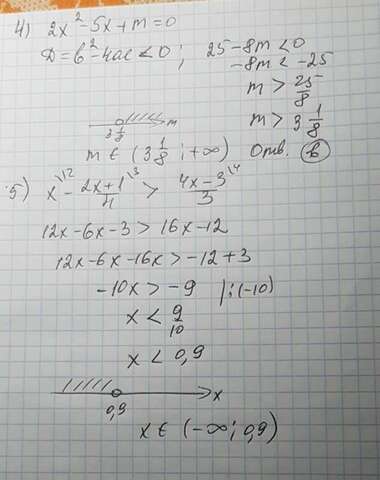 4) 2x² - 5x + m = 0
D = b² - 4ac < 0 ; 25 - 8m < 0
-8m < -25
m > 25/8
m > 3 1/8
3 1/8 m
m ∈ (3 1/8 ; +∞) Отв. в
5) x\12 - 2x+1\3 / 4 > 4x-3\4 / 3
12x - 6x - 3 > 16x - 12
12x - 6x - 16x > -12 + 3
-10x > -9 |:(-10)
x < 9/10
x < 0,9
0,9 x
x ∈ (-∞ ; 0,9)